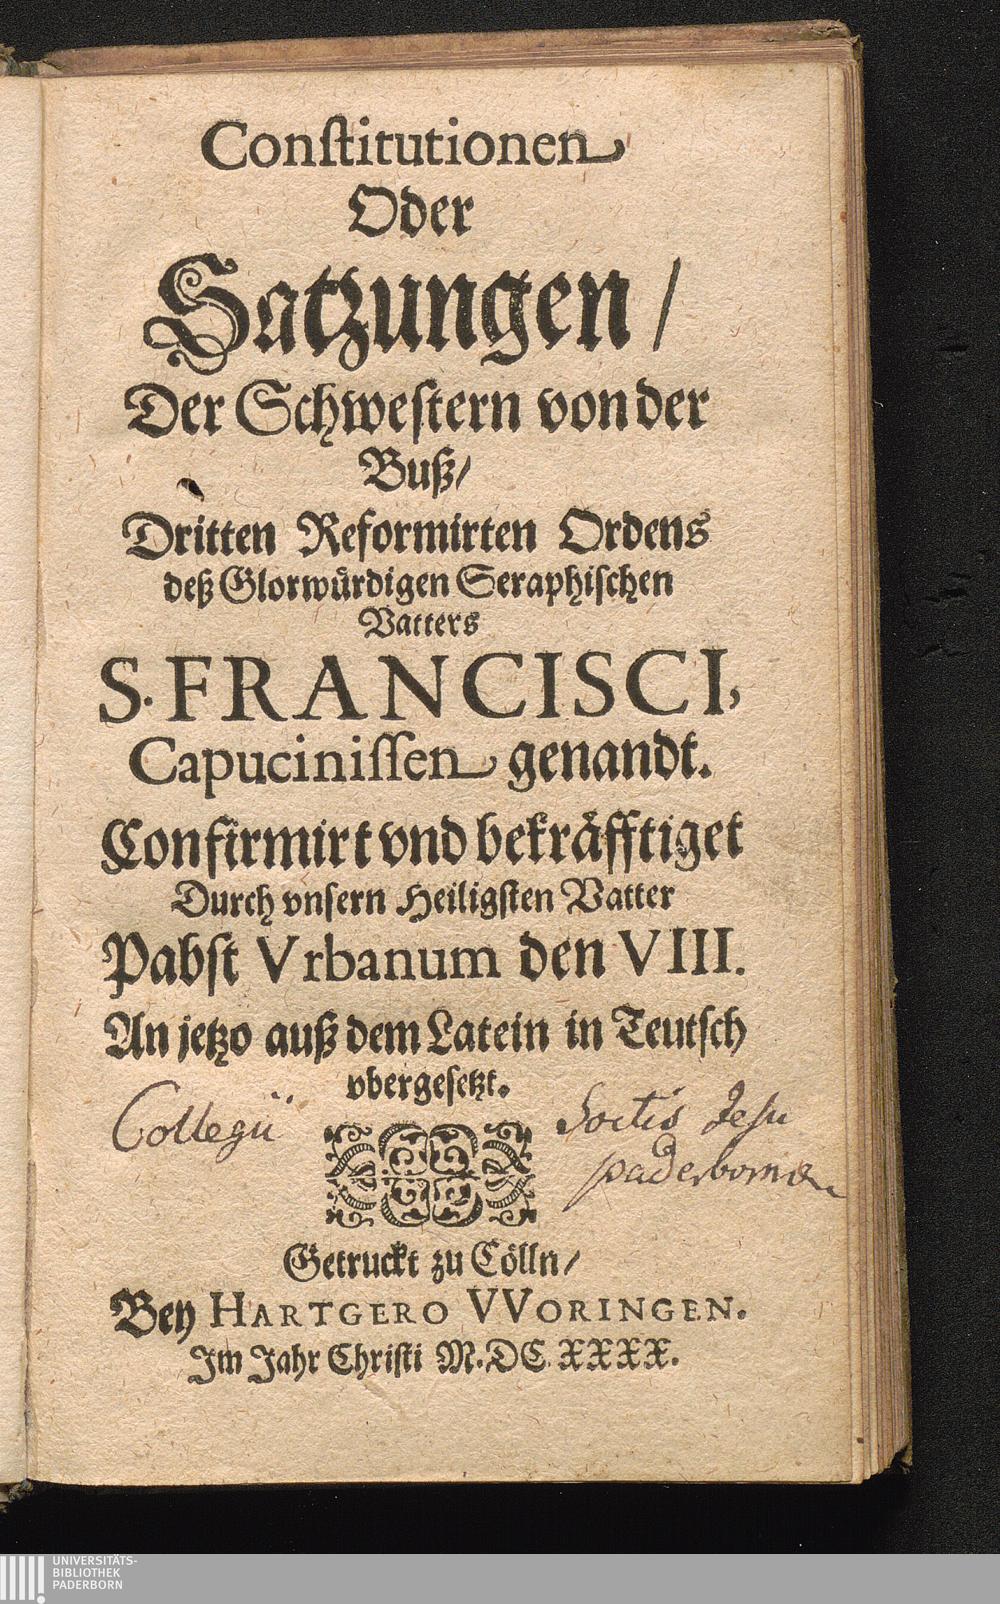 Constitutionen
Oder
Satzungen/
Der Schwestern von der
Buß/
Dritten Reformirten Ordens
deß Glorwürdigen Seraphischen
Vatters
S. FRANCISCI,
Capucinissen genandt.
Confirmirt vnd bekräfftiget
Durch vnsern Heiligsten Vatter
Pabst Vrbanum den VIII.
An jetzo auß dem Latein in Teutsch
vbergesetzt.
Collegii Soctis Jesu
paderbornæ
Getruckt zu Cölln/
Bey HARTGERO VVORINGEN.
Im Jahr Christi M.DC.XXXX.
UNIVERSITÄTS-
BIBLIOTHEK
PADERBORN